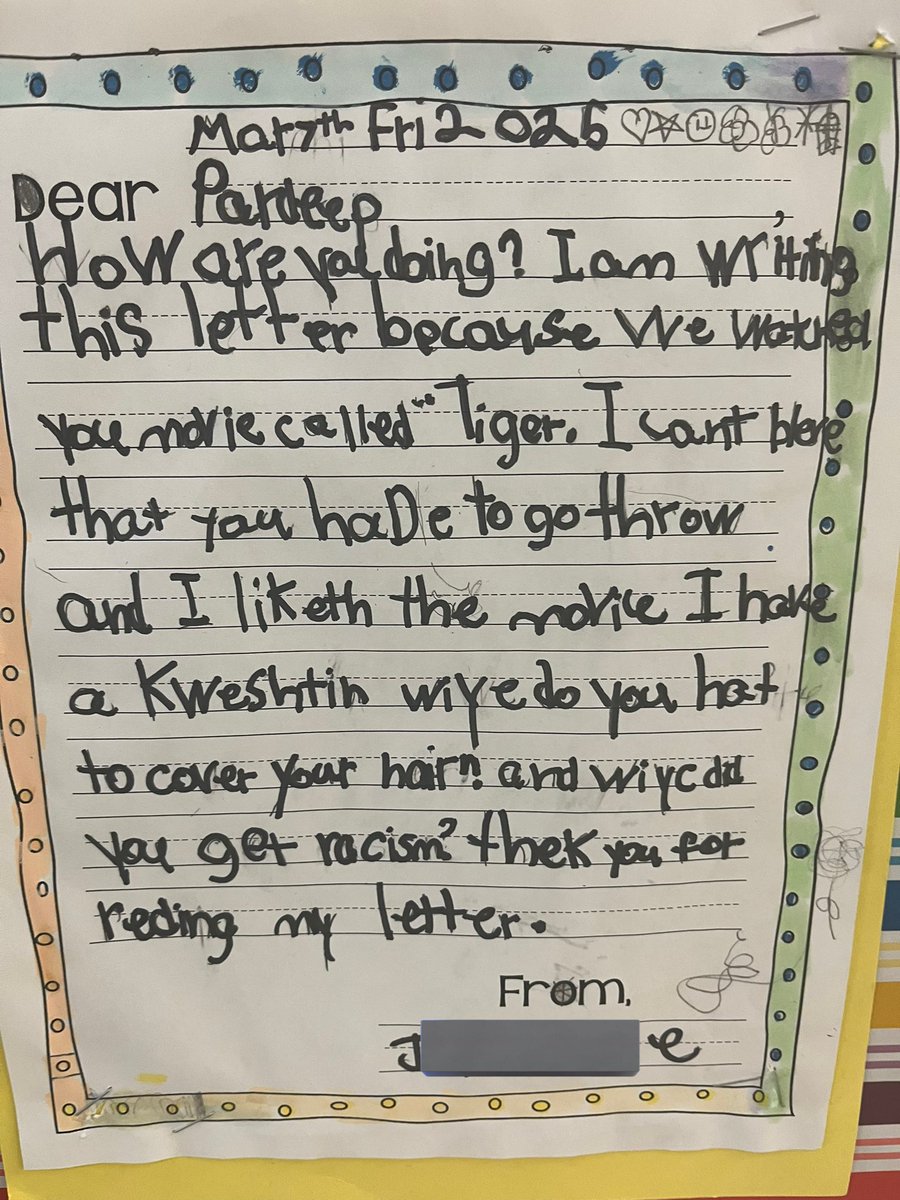 Mar 7th Fri 2025
Dear Pardeep,
How are yal doing? I am writing
this letter because We watched
you movie called "" Tiger. I cant bleve
that you haDe to go throw
and I liketh the movie I have
a Kweshtin wiye do you hat
to cover your hair? and wiye did
you get racism? thek you for
reding my letter.
From,
J e